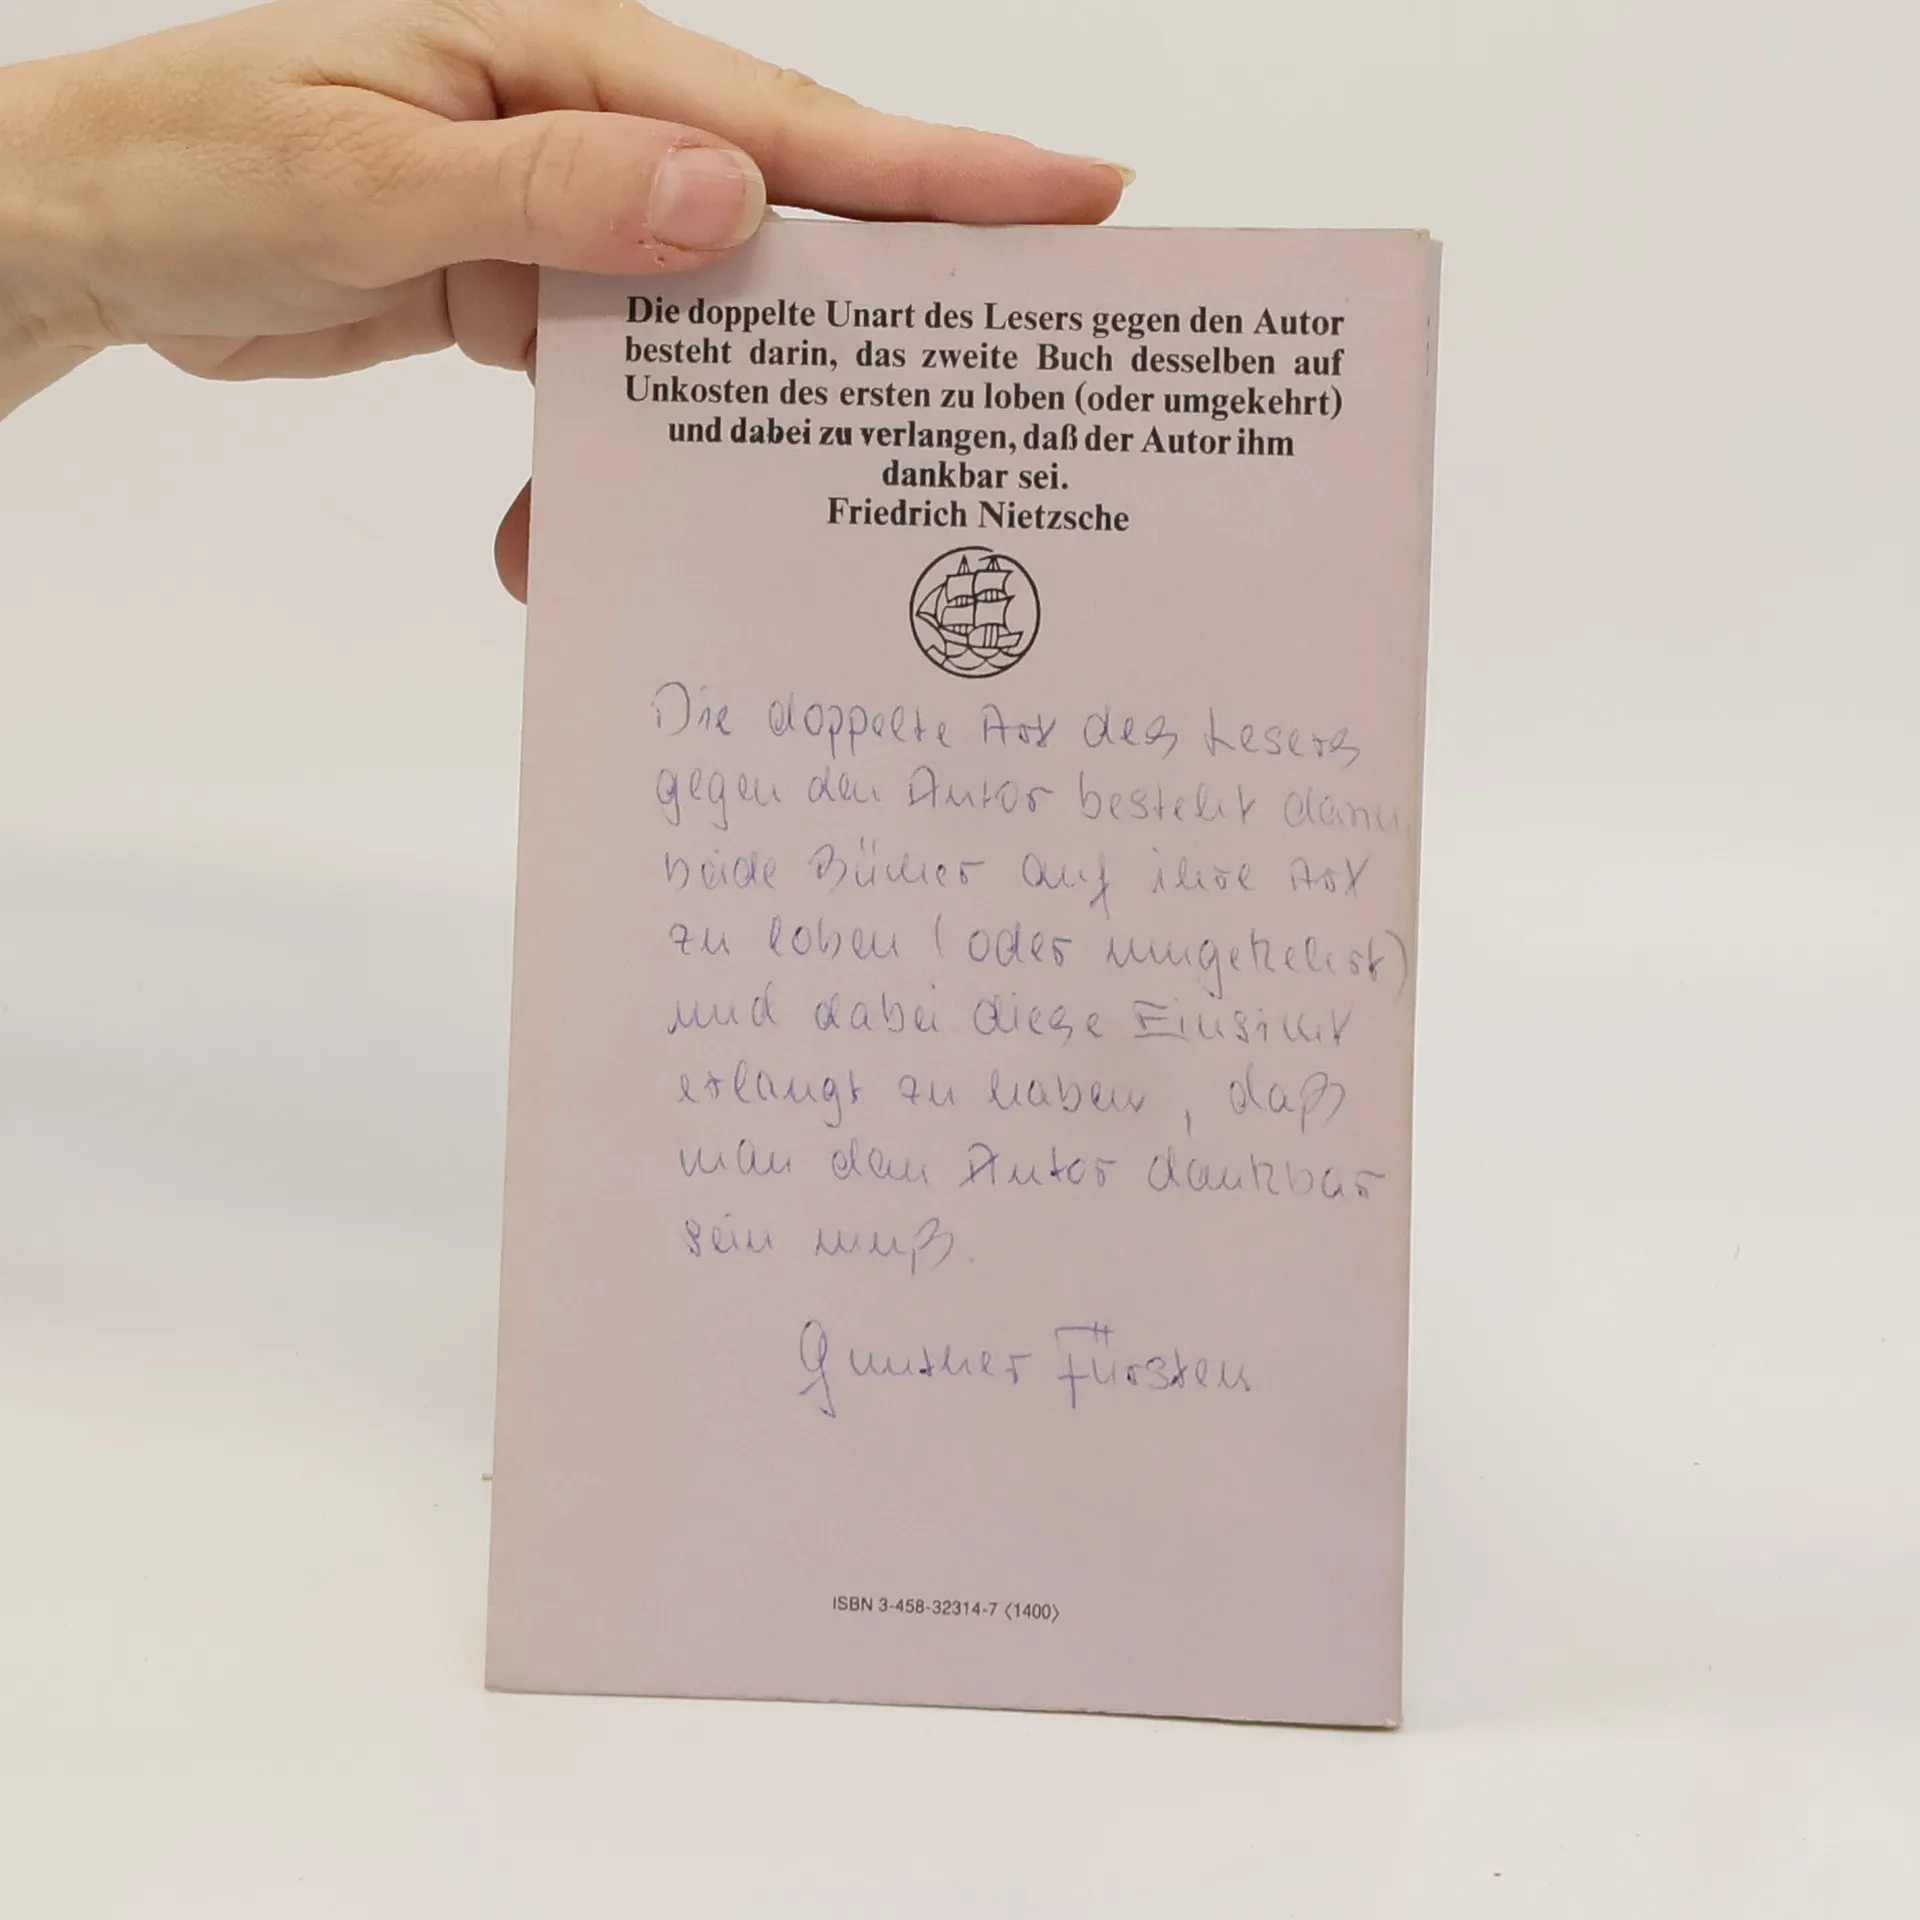 Die doppelte Unart des Lesers gegen den Autor
besteht darin, das zweite Buch desselben auf
Unkosten des ersten zu loben (oder umgekehrt)
und dabei zu verlangen, daß der Autor ihm
dankbar sei.
Friedrich Nietzsche
Die doppelte Art des Lesers
gegen den Autor besteht darin
beide Bücher auf ihre Art
zu loben (oder umgekehrt)
und dabei diese Einsicht
erlangt zu haben, daß
man dem Autor dankbar
sein muß.
Gunther Fürsten
ISBN 3-458-32314-7 ⟨1400⟩